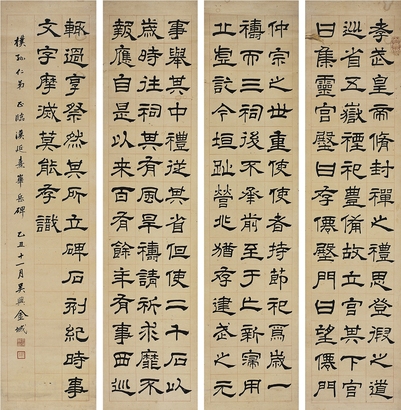 孝武皇帝脩封禪之禮思登假之道
巡省五嶽禋祀豐備故立宮其下宮
曰集靈宮壂曰存僊壂門曰望僊門
仲宗之世重使使者持節祀焉歲一
禱而三祠後不承前至于亡新寖用
丘虛訖今垣趾營兆猶存建武之元
事舉其中禮從其省但使二千石以
歲時往祠其有風旱禱請祈求靡不
報應自是以來百有餘年有事西巡
輒過亨祭然其所立碑石刻紀時事
文字摩滅莫能存識
樸孫仁弟正臨漢延熹華岳碑 乙丑十一月吳興金城